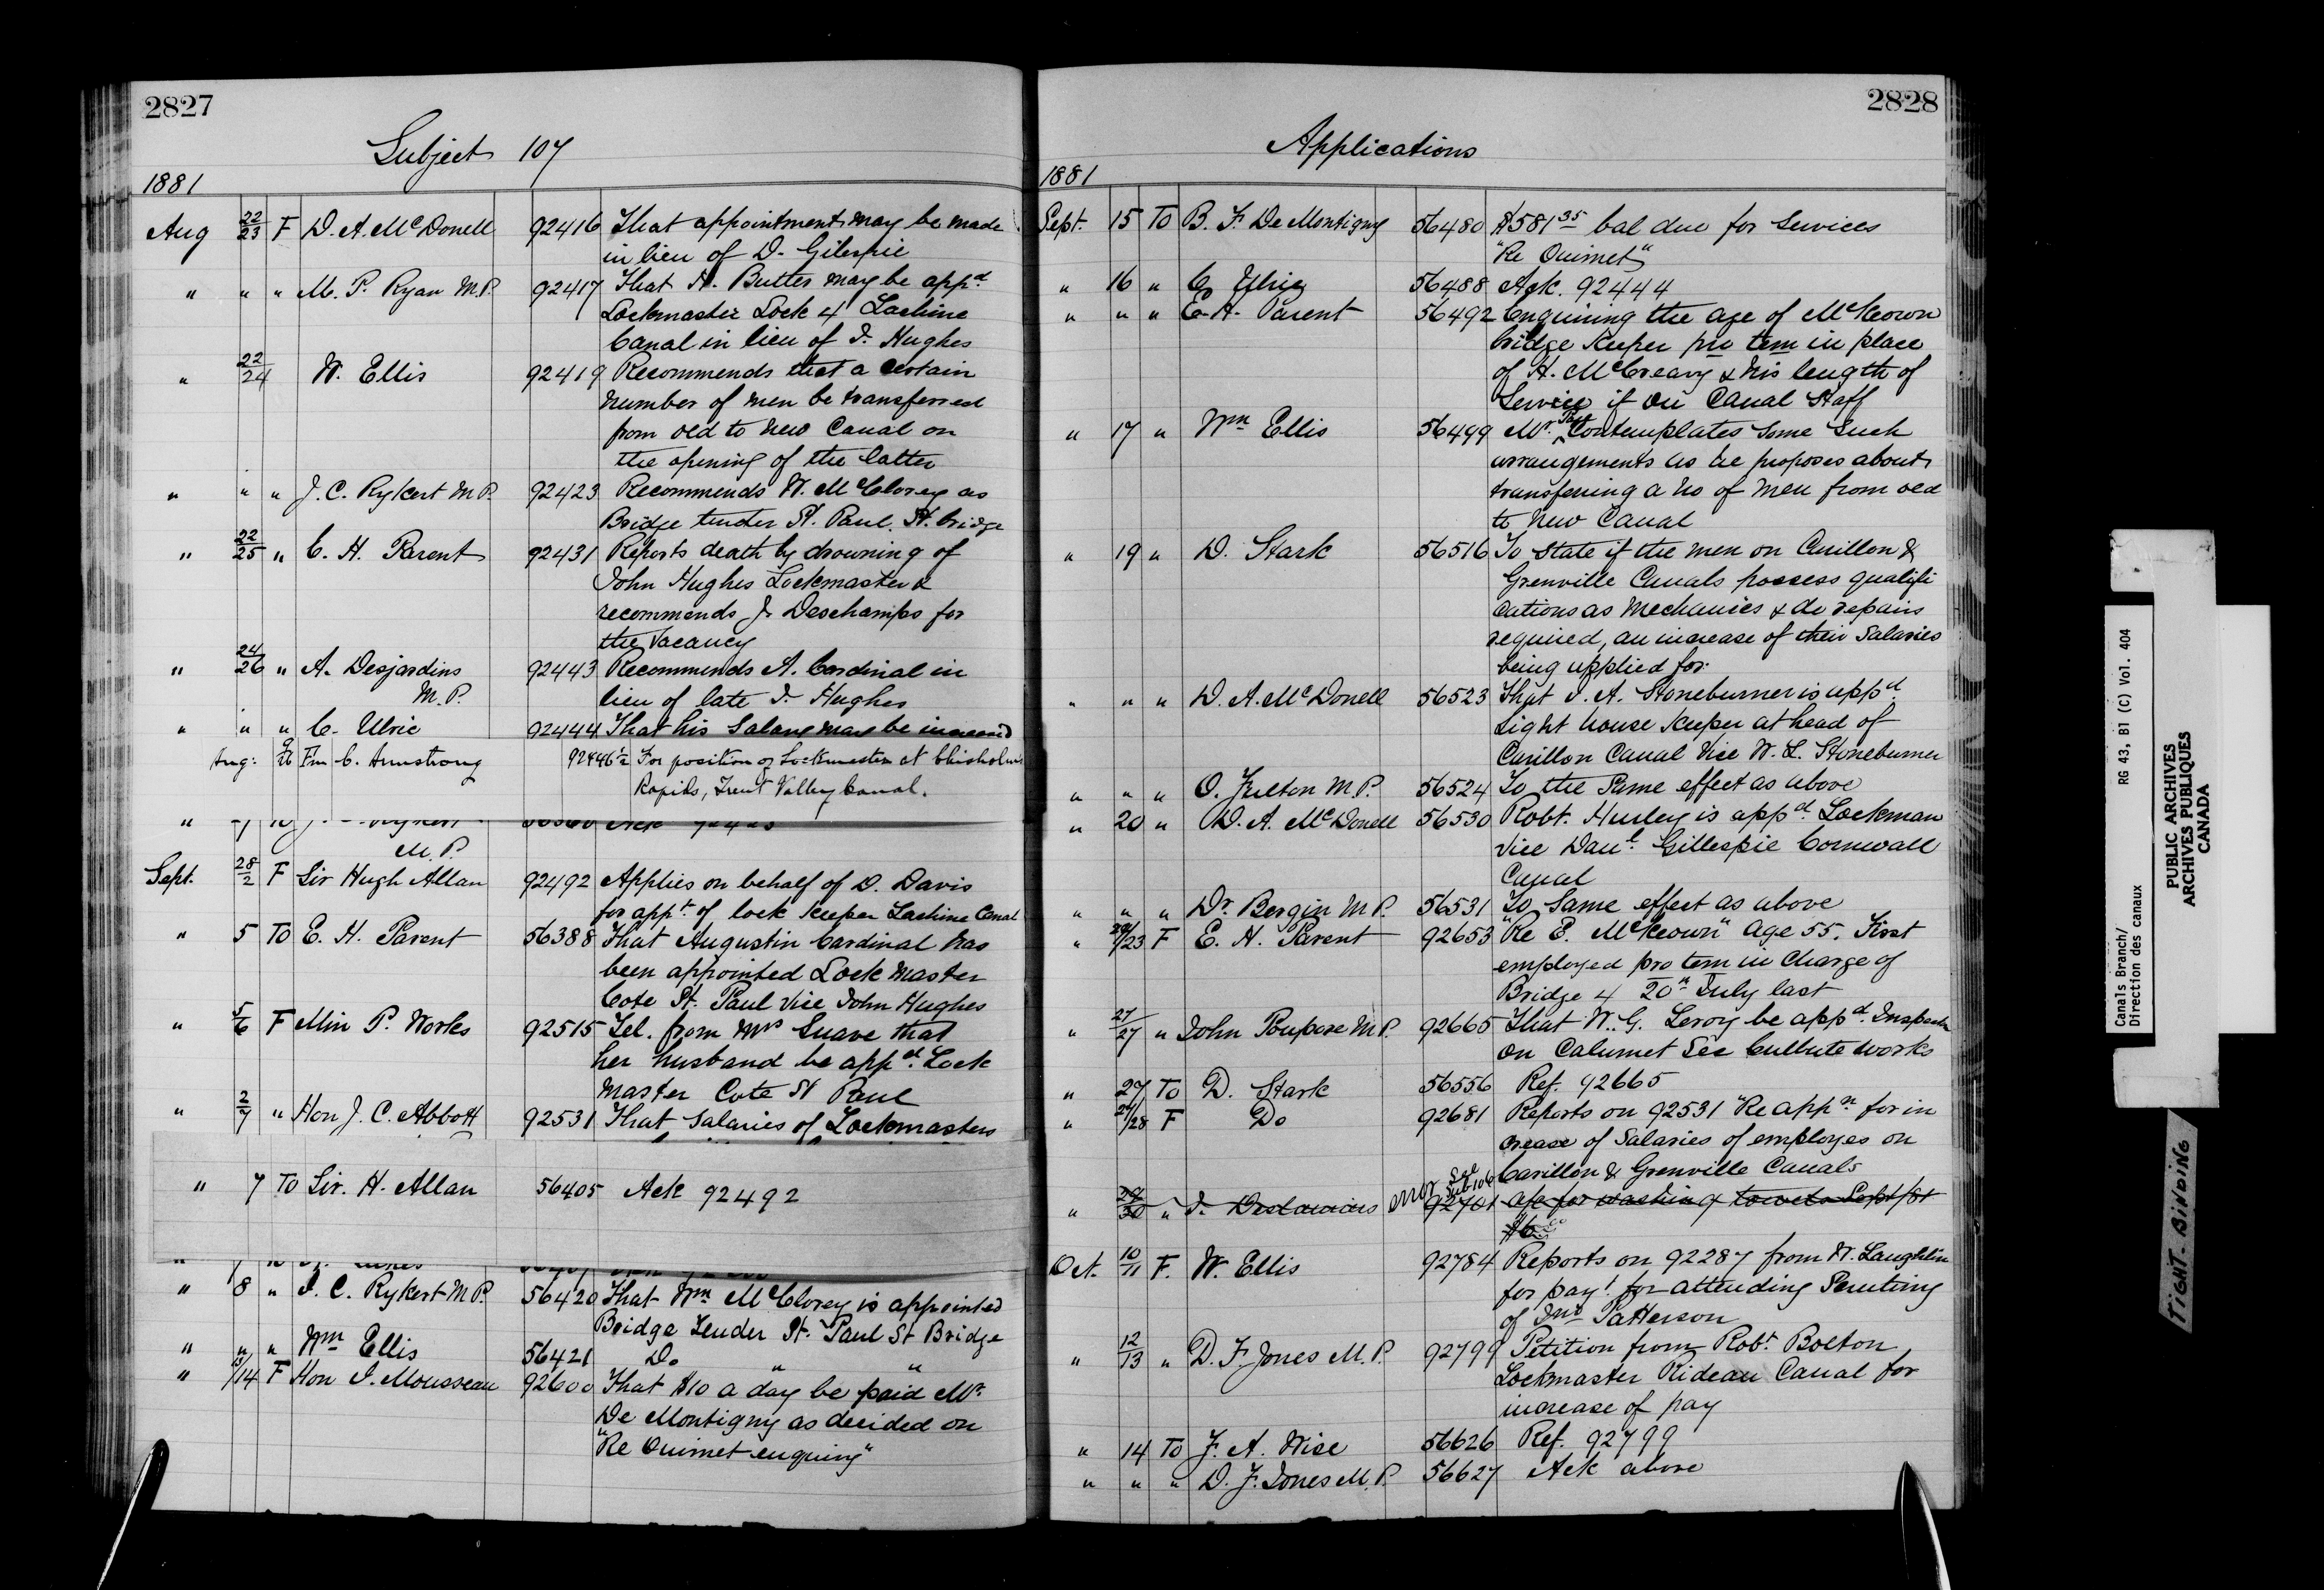 2827
Subject 107
1881
Aug 22/23 F D. A. McDonell 92416 That appointment may be made
in lieu of D. Gilespie
" " " M. P. Ryan M.P. 92417 That H. Butter may be appd
Lockmaster Lock 4 Lachine
Canal in lieu of J. Hughes
" 22/24 W. Ellis 92419 Recommends that a certain
number of men be transferred
from old to new Canal on
the opening of the latter
" " " J. C. Rykert M.P. 92423 Recommends W. McClorey as
Bridge tender St. Paul. St. bridge
" 22/25 " C. H. Parent 92431 Reports death by drowning of
John Hughes Lockmaster &
recommends J. Deschamps for
the vacancy
" 24/26 " A. Desjardins 92443 Recommends A. Cardinal in
M.P. lieu of late J. Hughes
" " " C. Ulric 92444 That his Salary may be increased
Aug: 9/26 Fm C. Armstrong 92446½ For position of Lockmaster at Chisholms
Rapids, Trent Valley Canal.
M.P.
Sept. 28/2 F Sir Hugh Allan 92492 Applies on behalf of D. Davis
for appt. of lock keeper Lachine Canal
" 5 To E. H. Parent 56388 That Augustin Cardinal has
been appointed Lock master
Cote St. Paul vice John Hughes
" 5/6 F Min P. Works 92515 Tel. from Mrs Suave that
her husband be appd. Lock
Master Cote St Paul
" 2/7 " Hon J. C. Abbott 92531 That Salaries of Lockmasters
" 7 To Sir. H. Allan 56405 Ack 92492
" 8 " J. C. Rykert M.P. 56420 That Wm McClorey is appointed
Bridge Tender St. Paul St Bridge
" " " Wm Ellis 56421 Do " "
" 13/14 F Hon J. Mousseau 92600 That $10 a day be paid Mr
De Montigny as decided on
"Re Ouimet enquiry"
2828
Applications
1881
Sept. 15 To B. F. De Montigny 56480 $581 35 bal due for Services
"Re Ouimet"
" 16 " C Ulric 56488 Ack. 92444
" " " E. H. Parent 56492 Enquiring the age of McKeown
bridge keeper pro tem in place
of H. McCreavy & his length of
Service if on Canal Staff
" 17 " Wm Ellis 56499 Mr. Page Contemplates some such
arrangements as he proposes about
transferring a no of men from old
to New Canal
" 19 " D. Stark 56516 To state if the men on Carillon &
Grenville Canals possess qualifi
cations as mechanics & do repairs
required, an increase of their Salaries
being applied for.
" " " D. A. McDonell 56523 That J. A. Stoneburner is appd
Light house keeper at head of
Carillon Canal vice W. L. Stoneburner
" " " O. Fulton M.P. 56524 To the same effect as above
" 20 " D. A. McDonell 56530 Robt. Hurley is appd Lockman
Vice Danl. Gillespie Cornwall
Canal
" " " Dr. Bergin M.P. 56531 To Same effect as above
" 22/23 F E. H. Parent 92653 "Re E. McKeown" Age 55. First
employed pro tem in charge of
Bridge 4 20th July last
" 21/27 " John Poupore M.P. 92665 That W. G. Leroy be appd. Inspector
on Calumet See Culbute works
" 27 To D. Stark 56556 Ref. 92665
" 27/28 F Do 92681 Reports on 92531 "Re appn for in
crease of Salaries of employes on
Carillon & Grenville Canals
" 29/30 " J. Deslauriers error See Sub 106 92701 a/c for washing towels Sept/81
$6 00
Oct. 10/11 F. W. Ellis 92784 Reports on 92287 from W. Laughlin
for payt for attending Scrutiny
of Jno Patterson
" 12/13 " D. F. Jones M.P. 92799 Petition from Robt Bolton
Lockmaster Rideau Canal for
increase of pay
" 14 To F. A. Wise 56626 Ref. 92799
" " " D. F. Jones M.P. 56627 Ack above
Canals Branch/
Direction des canaux
RG 43, B1 (C) Vol. 404
PUBLIC ARCHIVES
ARCHIVES PUBLIQUES
CANADA
TIGHT BINDING